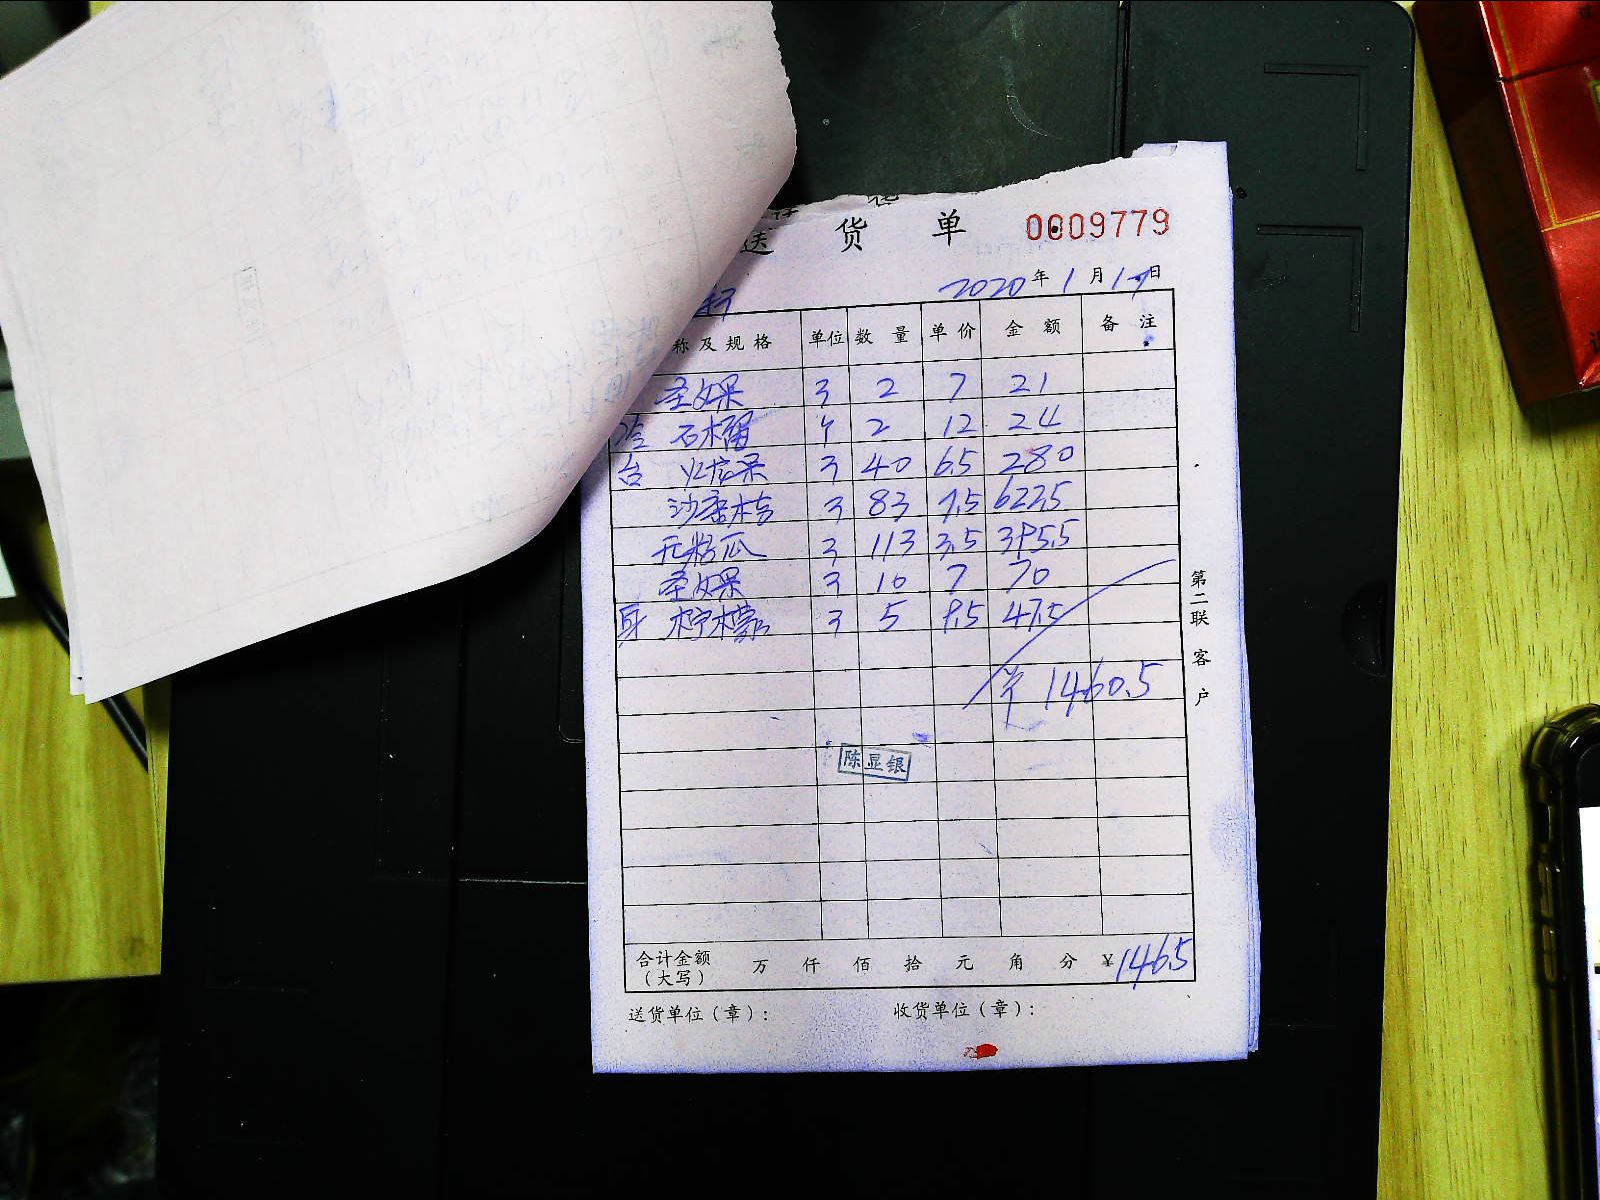 送货单 0009779
2020年1月17日
称及规格 单位 数量 单价 金额 备注
圣女果 3 2 7 21
冷 石榴 个 2 12 24
台 火龙果 3 40 6.5 280
沙糖桔 3 83 7.5 622.5
瓜 3 113 3.5 395.5
圣女果 3 10 7 70
身 柠檬 3 5 9.5 47.5
¥1460.5
陈显银
合计金额(大写) 万 仟 佰 拾 元 角 分 ¥146.5
送货单位(章): 收货单位(章):
第二联 客户